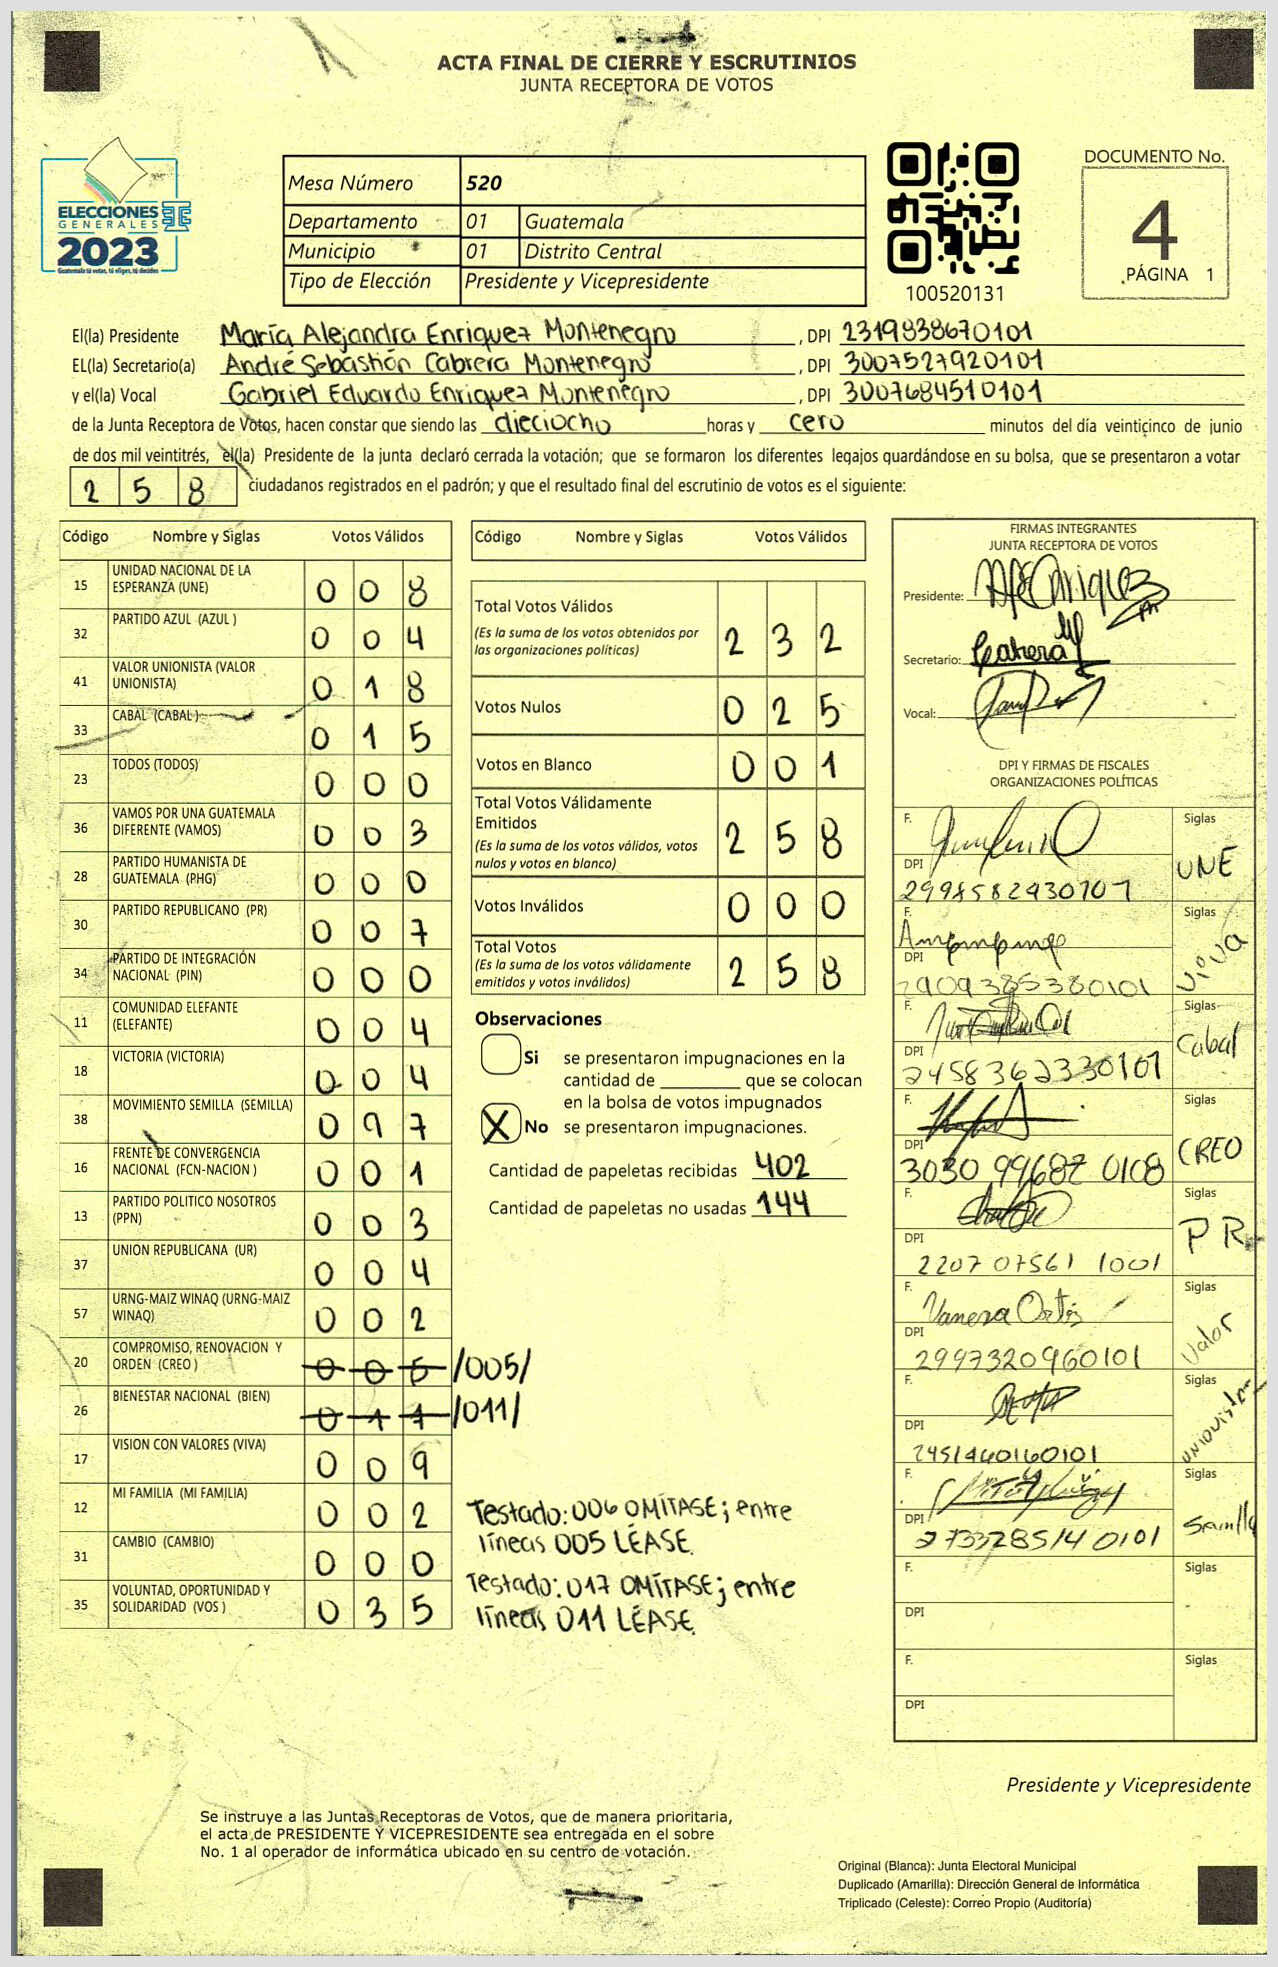 ACTA FINAL DE CIERRE Y ESCRUTINIOS
JUNTA RECEPTORA DE VOTOS
ELECCIONES
GENERALES
2023
Guatemala tú votas, tú eliges, tú decides
Mesa Número 520
Departamento 01 Guatemala
Municipio 01 Distrito Central
Tipo de Elección Presidente y Vicepresidente
100520131
DOCUMENTO No.
4
PÁGINA 1
El(la) Presidente María Alejandra Enriquez Montenegro, DPI 2319838670101
EL(la) Secretario(a) André Sebastián Cabrera Montenegro, DPI 3007527920101
y el(la) Vocal Gabriel Eduardo Enriquez Montenegro, DPI 3007684510101
de la Junta Receptora de Votos, hacen constar que siendo las dieciocho horas y cero minutos del día veinticinco de junio
de dos mil veintitrés, el(la) Presidente de la junta declaró cerrada la votación; que se formaron los diferentes legajos guardándose en su bolsa, que se presentaron a votar
2 5 8 ciudadanos registrados en el padrón; y que el resultado final del escrutinio de votos es el siguiente:
Código Nombre y Siglas Votos Válidos
15 UNIDAD NACIONAL DE LA ESPERANZA (UNE) 0 0 8
32 PARTIDO AZUL (AZUL ) 0 0 4
41 VALOR UNIONISTA (VALOR UNIONISTA) 0 1 8
33 CABAL (CABAL ) 0 1 5
23 TODOS (TODOS) 0 0 0
36 VAMOS POR UNA GUATEMALA DIFERENTE (VAMOS) 0 0 3
28 PARTIDO HUMANISTA DE GUATEMALA (PHG) 0 0 0
30 PARTIDO REPUBLICANO (PR) 0 0 7
34 PARTIDO DE INTEGRACIÓN NACIONAL (PIN) 0 0 0
11 COMUNIDAD ELEFANTE (ELEFANTE) 0 0 4
18 VICTORIA (VICTORIA) 0 0 4
38 MOVIMIENTO SEMILLA (SEMILLA) 0 9 7
16 FRENTE DE CONVERGENCIA NACIONAL (FCN-NACION ) 0 0 1
13 PARTIDO POLITICO NOSOTROS (PPN) 0 0 3
37 UNION REPUBLICANA (UR) 0 0 4
57 URNG-MAIZ WINAQ (URNG-MAIZ WINAQ) 0 0 2
20 COMPROMISO, RENOVACION Y ORDEN (CREO ) 0 0 6 /005/
26 BIENESTAR NACIONAL (BIEN) 0 1 7 /011/
17 VISION CON VALORES (VIVA) 0 0 9
12 MI FAMILIA (MI FAMILIA) 0 0 2
31 CAMBIO (CAMBIO) 0 0 0
35 VOLUNTAD, OPORTUNIDAD Y SOLIDARIDAD (VOS ) 0 3 5
Código Nombre y Siglas Votos Válidos
Total Votos Válidos 2 3 2
(Es la suma de los votos obtenidos por
las organizaciones políticas)
Votos Nulos 0 2 5
Votos en Blanco 0 0 1
Total Votos Válidamente
Emitidos 2 5 8
(Es la suma de los votos válidos, votos
nulos y votos en blanco)
Votos Inválidos 0 0 0
Total Votos 2 5 8
(Es la suma de los votos válidamente
emitidos y votos inválidos)
Observaciones
Si se presentaron impugnaciones en la
cantidad de ________ que se colocan
en la bolsa de votos impugnados
X No se presentaron impugnaciones.
Cantidad de papeletas recibidas 402
Cantidad de papeletas no usadas 144
Testado: 006 OMÍTASE; entre
líneas 005 LÉASE.
Testado: 017 OMÍTASE; entre
líneas 011 LÉASE.
FIRMAS INTEGRANTES
JUNTA RECEPTORA DE VOTOS
Presidente:
Secretario: Cabrera
Vocal:
DPI Y FIRMAS DE FISCALES
ORGANIZACIONES POLÍTICAS
F. Siglas UNE
DPI 2998582930101
F. Siglas Viva
DPI 2909385380101
F. Siglas Cabal
DPI 2458362330101
F. Siglas CREO
DPI 3030 99687 0108
F. Siglas PR
DPI 2207 07561 1001
F. Vanessa Ortís Siglas Valor
DPI 2997320960101
F. Siglas Unionista
DPI 2451460160101
F. Siglas Semilla
DPI 2733285140101
F. Siglas
DPI
F. Siglas
DPI
Presidente y Vicepresidente
Se instruye a las Juntas Receptoras de Votos, que de manera prioritaria,
el acta de PRESIDENTE Y VICEPRESIDENTE sea entregada en el sobre
No. 1 al operador de informática ubicado en su centro de votación.
Original (Blanca): Junta Electoral Municipal
Duplicado (Amarilla): Dirección General de Informática
Triplicado (Celeste): Correo Propio (Auditoría)